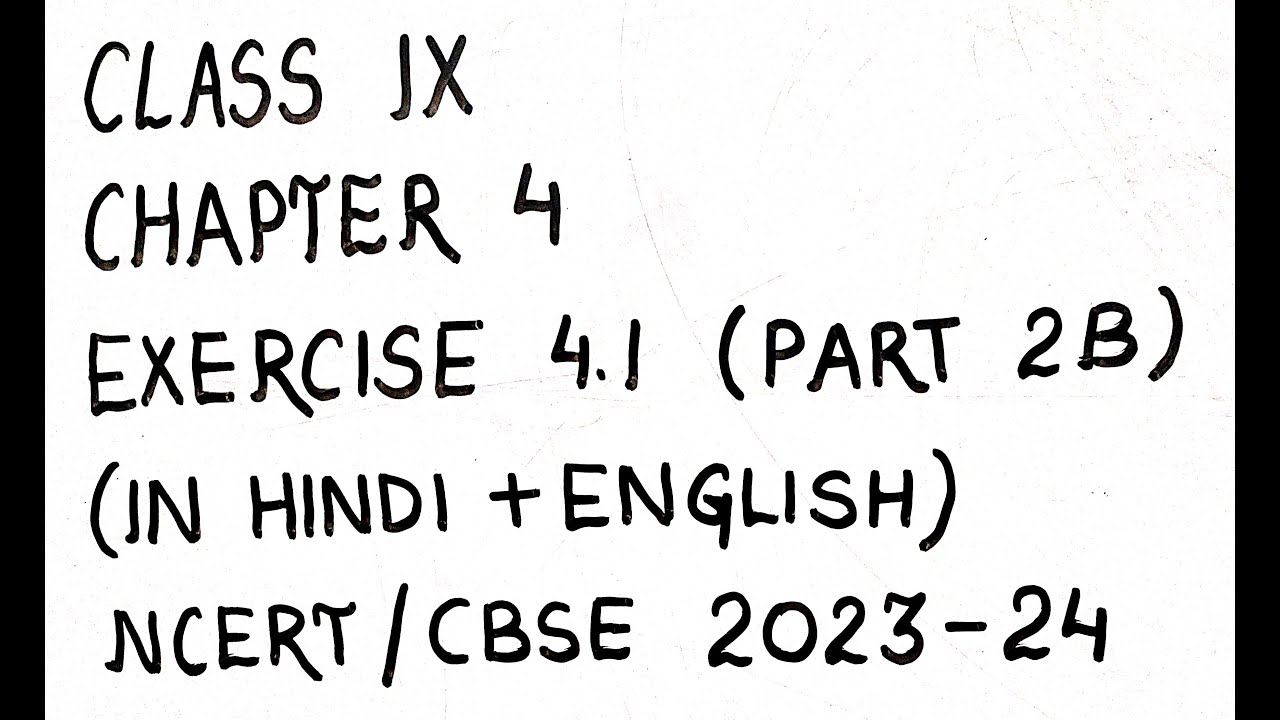 CLASS IX
CHAPTER 4
EXERCISE 4.1 (PART 2B)
(IN HINDI + ENGLISH)
NCERT/CBSE 2023-24